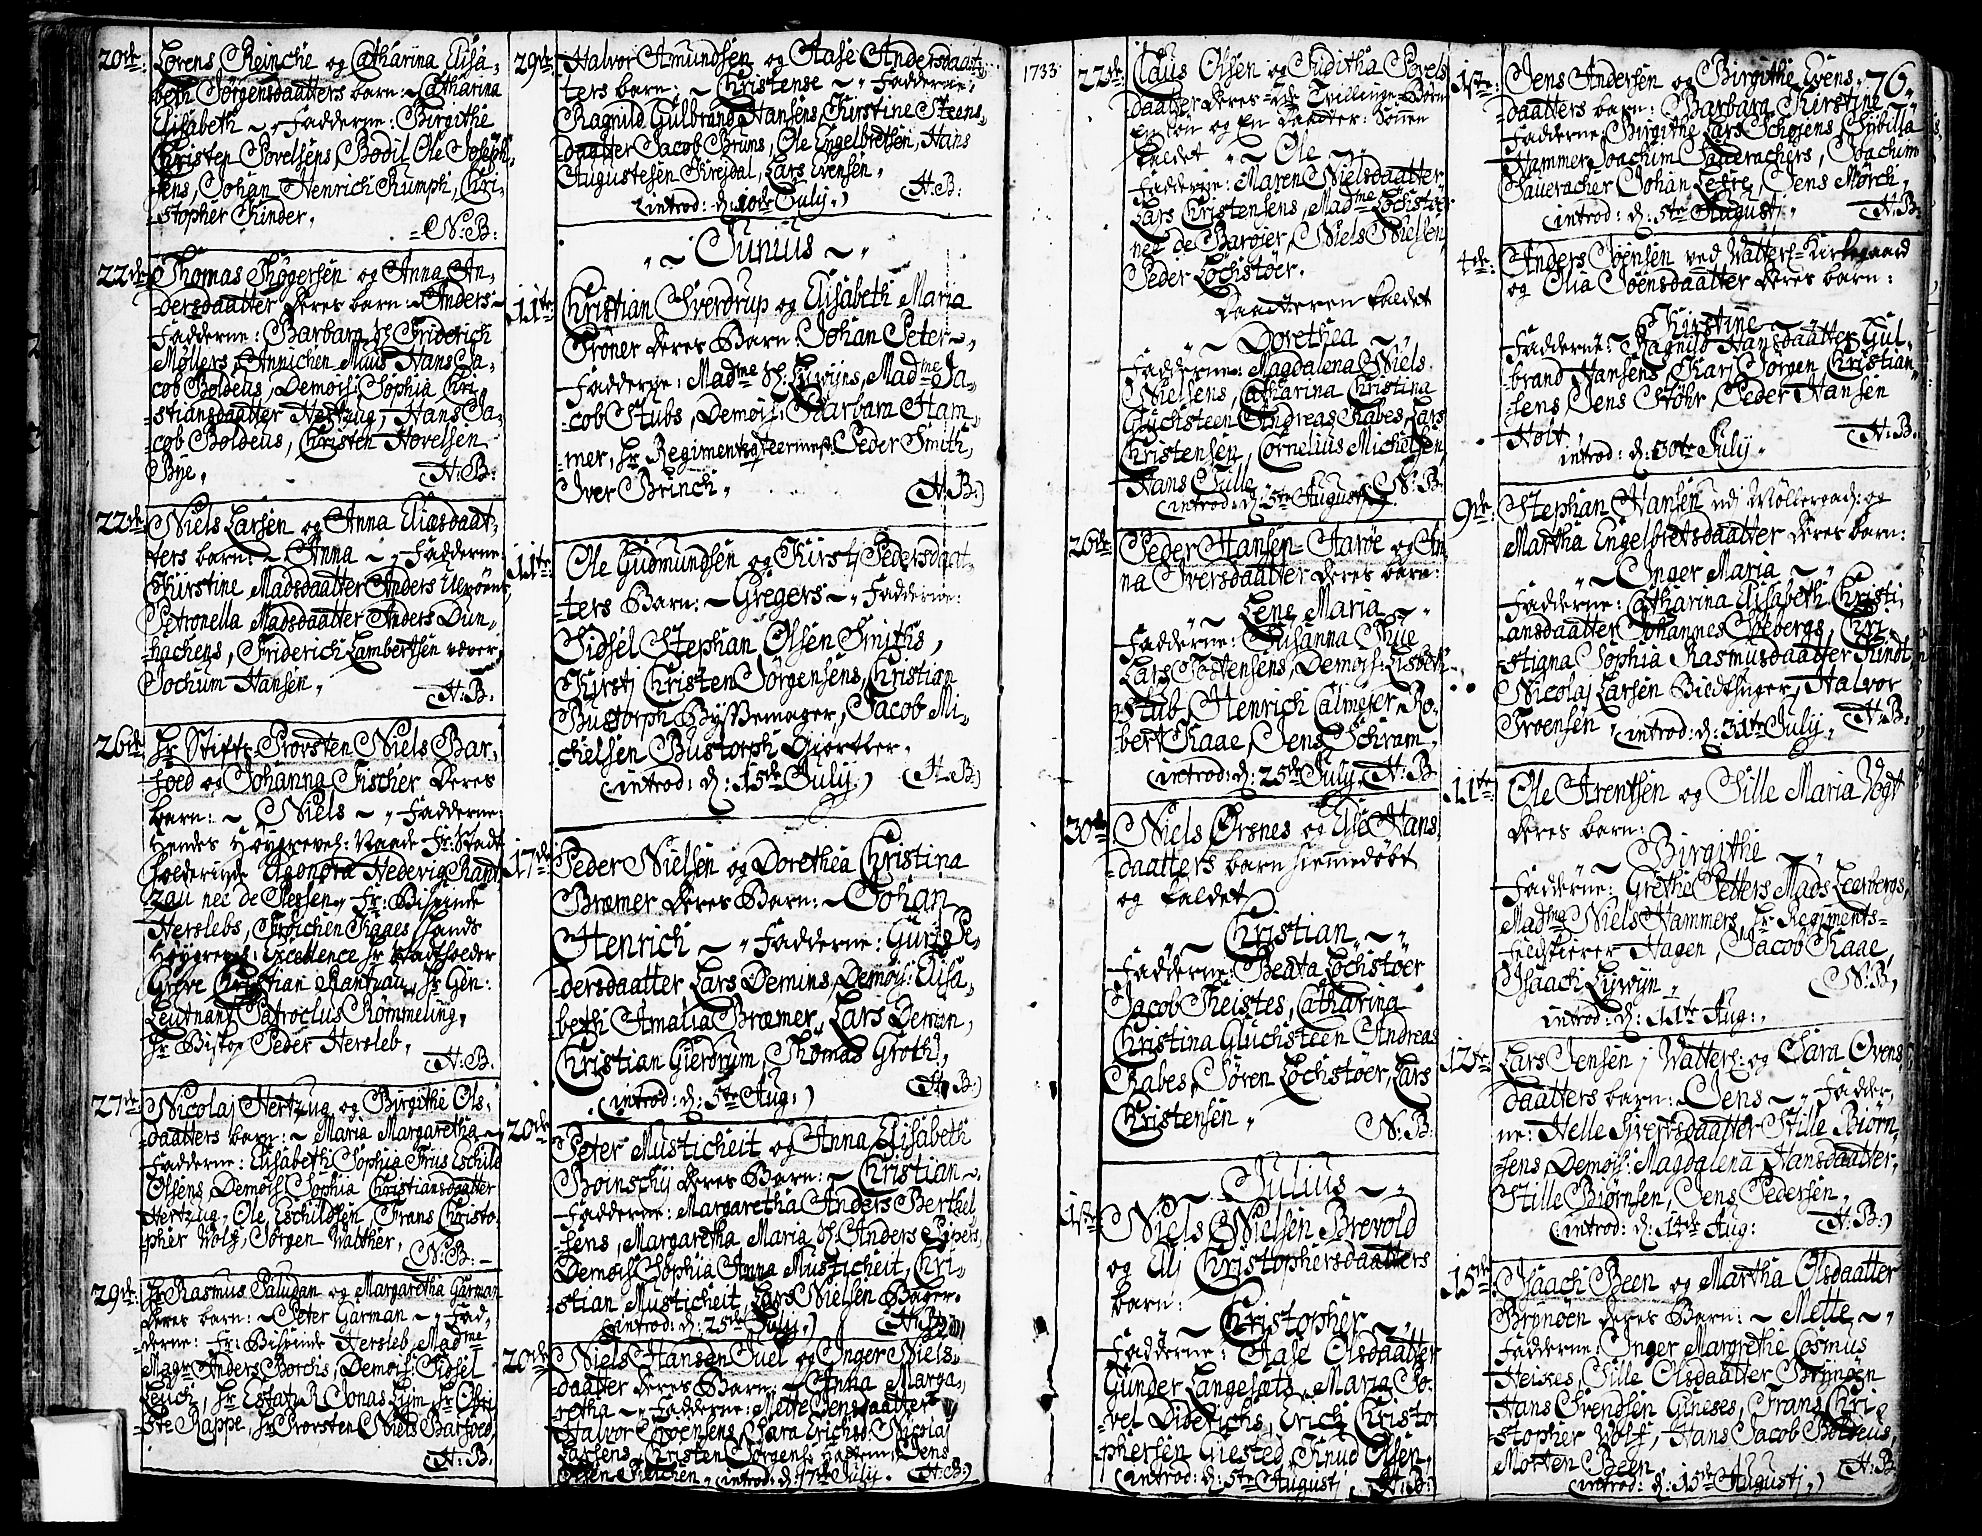 20de: Lorens Reinche og Catharina Elisa,
beth Jørgensdaatters barn: Catharina
Elisabeth ~ Fadderne: Birgithe
Christen Povelsens, Bodil Ole Joseph,
sens, Johan Henrich Rumph, Chri,
stopher Kinder,
N:B:
22de: Thomas Thøgersen og Anna An,
dersdaatter deres barn: Anders ~
Fadderne: Barbara Friderich
Møllers, Annichen Muus Hans Ja,
cob Boldeus, Demois: Sophia Chri,
stiansdaatter Hertzug, Hans Ja,
cob Boldeus, Christen Hovelsen
Bye,
H:B:
22de Niels Larsen og Anna Eliæsdaat,
ters barn: ~ Anna ~ Fadderne:
Kirstine Madsdaatter Anders
Petronella Madsdaatter Anders Dun,
hachens, Friderich Lambertsen væver,
Jochum Hansen,
H:B.
26de Hr Stifts Provsten Niels Bar,
foed og Johanna Fischer deres
barn: ~ Niels ~ Fadderne:
Hendes Høygrevel: Naade Fr: Stadt
holderinde Eleonora Hedevig Rant
zau neè de Plessen, Fr: Bispinde
Herslebs, Frøichen Kaaes, Hands
Høygrevel: Excellence Hr Stadtholder
Greve Christian Rantzau, Hr Gen:
Leutnant Patroclus Rømmeling,
Hr Biskop Peder Hersleb,
H:B.
27de Nicolaj Hertzug og Birgithe Ols,
daatters barn: ~ Maria Margaretha ~
Fadderne: Elisabeth Sophia Friis Eschild
Olsens Demois Sophia Christiansdaatter
Hertzug, Ole Eschildsen, Frans Christo,
pher Wolf, Jørgen Walther,
N:B:
29de: Hr Rasmus Paludan og Margaretha Garman
deres barn: ~ Peter Garman ~ Fad,
derne: Fr: Bispinde Hersleb, Madme
Magr Anders Borchs, Demois: Sidsel
Leuch, Hr Estats R. Jonas Lym, Hr Chri
ste Rappe, Hr Provsten Niels Barfoed,
H:B.
29de Halvor Amundsen og Aase Andersdaat,
ters barn: ~ Christense ~ Fadderne:
Ragnild Gulbrand Hansens, Kirstine Steens,
daatter Jacob Bruns, Ole Engelbretsen, Hans
Augustesen Krejdal, Lars Evensen,
(introd: d: 10de July,) H:B:
~ Junius ~
11te: Christian Sverdrup og Elisabeth Maria
Trøner deres Barn: Johan Peter ~
Fadderne: Madme Sl. Lywijns, Madme Ja,
cob Stubs, Demois: Barbara Ham,
mer, Hr Regimentsqteermestr Peder Smith,
Iver Brinch, H.B:)
11te: Ole Gudmundsen og Kirstj Pedersdaat,
ters Barn: ~ Gregers ~ Fadderne:
Sidsel Stephan Olsen Smiths,
Kirstj Christen Jørgensens, Christian
Bustorph Byssemager, Jacob Mi,
chelsen Bustorph Giørtler,
(introd: d: 15de July,) H:B:)
17de Peder Nielsen og Dorethea Christina
Bræmer deres Barn: ~ Johan
Henrich ~ Fadderne: Gurj Pe,
dersdaatter Lars Demins, Demois: Elisa,
beth Amalia Bræmer, Lars Demin,
Christian Gierdrum, Thomas Groth,
(introd: d: 5te Aug:) H:B:)
20de Peter Musticheit og Anna Elisabeth
Boinschij deres Barn: ~ Christian ~
Fadderne: Margaretha Anders Berthel,
sens, Margaretha Maria Sl. Anders Pipers,
Demois Sophia Anna Musticheit, Chri,
stian Musticheit, Lars Nielsen Bager,
(introd: d: 25de July,) H:B:
20de Niels Hansen Juel og Inger Niels,
daatter deres Barn: ~ Anna Marga,
retha ~ Fadderne: Mette Jensdaatter
Halvor Svensens, Sara Erichsd: Nicolaj
Larsens, Christen Jørgens: Jens
Olsen (introd: d: 17de July, H:B:)
1733.
22de: Claus Olsen og Juditha Povels
daatter deres 2de Tvillinge-Børn
En Søn og En Daatter: Sønen
kaldet ~ Ole ~
Fadderne: Maren Nielsdaatter
Lars Christensens, Madme Lochstør
neé de Baroier, Niels Nielsen,
Peder Lochstøer.
Daatteren kaldet
~ Dorethea ~
Fadderne: Magdalena Niels
Nielsens, Catharina Christina
Glychsteen Andreas Rabes, Lars
Christensen, Cornelius Michelsen,
Hans Tulle,
(introd: d: 5te Augustj) N:B:
26de Peder Hansen Aarøe og An
na Iversdaatter deres barn:
~ Lene Maria ~
Fadderne: Susanna Thue
Lars Mortensens, Demois: Lisbeth
Stub, Henrich Calmejer, Ro,
bert Kaae, Jens Schram,
(introd: d: 25de July, H:B:
30te Niels Ørsnes og Else Hans,
daatters barn hiemmedøbt
og kaldet
~ Christian ~
Fadderne: Beata Lochstøer
Jacob Theistes, Catharina
Christina Gluchsteen Andreas
Rabes, Søren Lochstøer, Lars
Christensen, N:B:
~ Julius ~
1ste: Niels Nielsen Brevold
og Elj Christophersdaatters
barn:
~ Christopher ~
Fadderne: Aase Olsdaatter
Gunder Langesæts, Maria Po,
vel Diderichs, Erich Christo
phersen Giested, Knud Olsen,
(introd: d: 5te Augustj H:B:)
76.
1ste: Jens Andersen og Birgithe Evens,
daatters barn: Barbara Kirstine,
Fadderne: Birgithe Lars Schojens, Sybilla
Hammer Joachim Saueraches, Joachim
Saueracher Johan Leste, Jens Mørch,
(introd: d: 5te Augustj, H:B:
4de: Anders Joensen ved Watters-Kirkegaard
og Olia Joensdaatter deres barn:
~ Kirstine ~
Fadderne: Ragnild Hansdaatter Gul,
brand Hansens, Karj Jørgen Christian,
sens, Jens Støhr, Peder Hansen
Holt.
introd: d: 30te July, H:B.
9de: Stephan Hansen ved Møllergad: og
Martha Engelbretsdaatter deres barn:
~ Inger Maria ~
Fadderne: Catharina Elisabeth Christi,
ansdaatter Johannes Soebergs, Chri,
stigna Sophia Rasmusdaatter Kindt,
Nicolaj Larsen Bildthuger, Halvor
Troensen, (introd: d: 31te July, H:B:
11te: Ole Arentsen og Sille Maria Vogt
deres barn:
~ Birgithe ~
Fadderne: Grethe Petters Mads Leerbergs,
Madme Niels Hammers, Hr Regiments-
feldskierer Hagen, Jacob Kaae,
Isaach Lywijn, N:B,
introd: d: 11te Aug:,
12te: Lars Jensen, Watters: og Sara Svens,
daatters barn: ~ Jens ~ Fadder,
ne: Helle Siversdaatter Stille Biørn,
sens Demois: Magdalena Hansdaatter,
Stille Biørnsen, Jens Pedersen,
(introd: d: 14de Aug: H:B:)
15de: Isaach Been og Martha Olsdaatter
Brønøen deres Barn: ~ Mette ~
Fadderne: Inger Margrethe Cosmus
Heises, Sille Olsdaatter Brynøen
Hans Svendsen Gineses, Frans Chri,
stopher Wolf, Hans Jacob Boldeus,
Morten Been
(introd: d: 15de Augustj,) H:B.